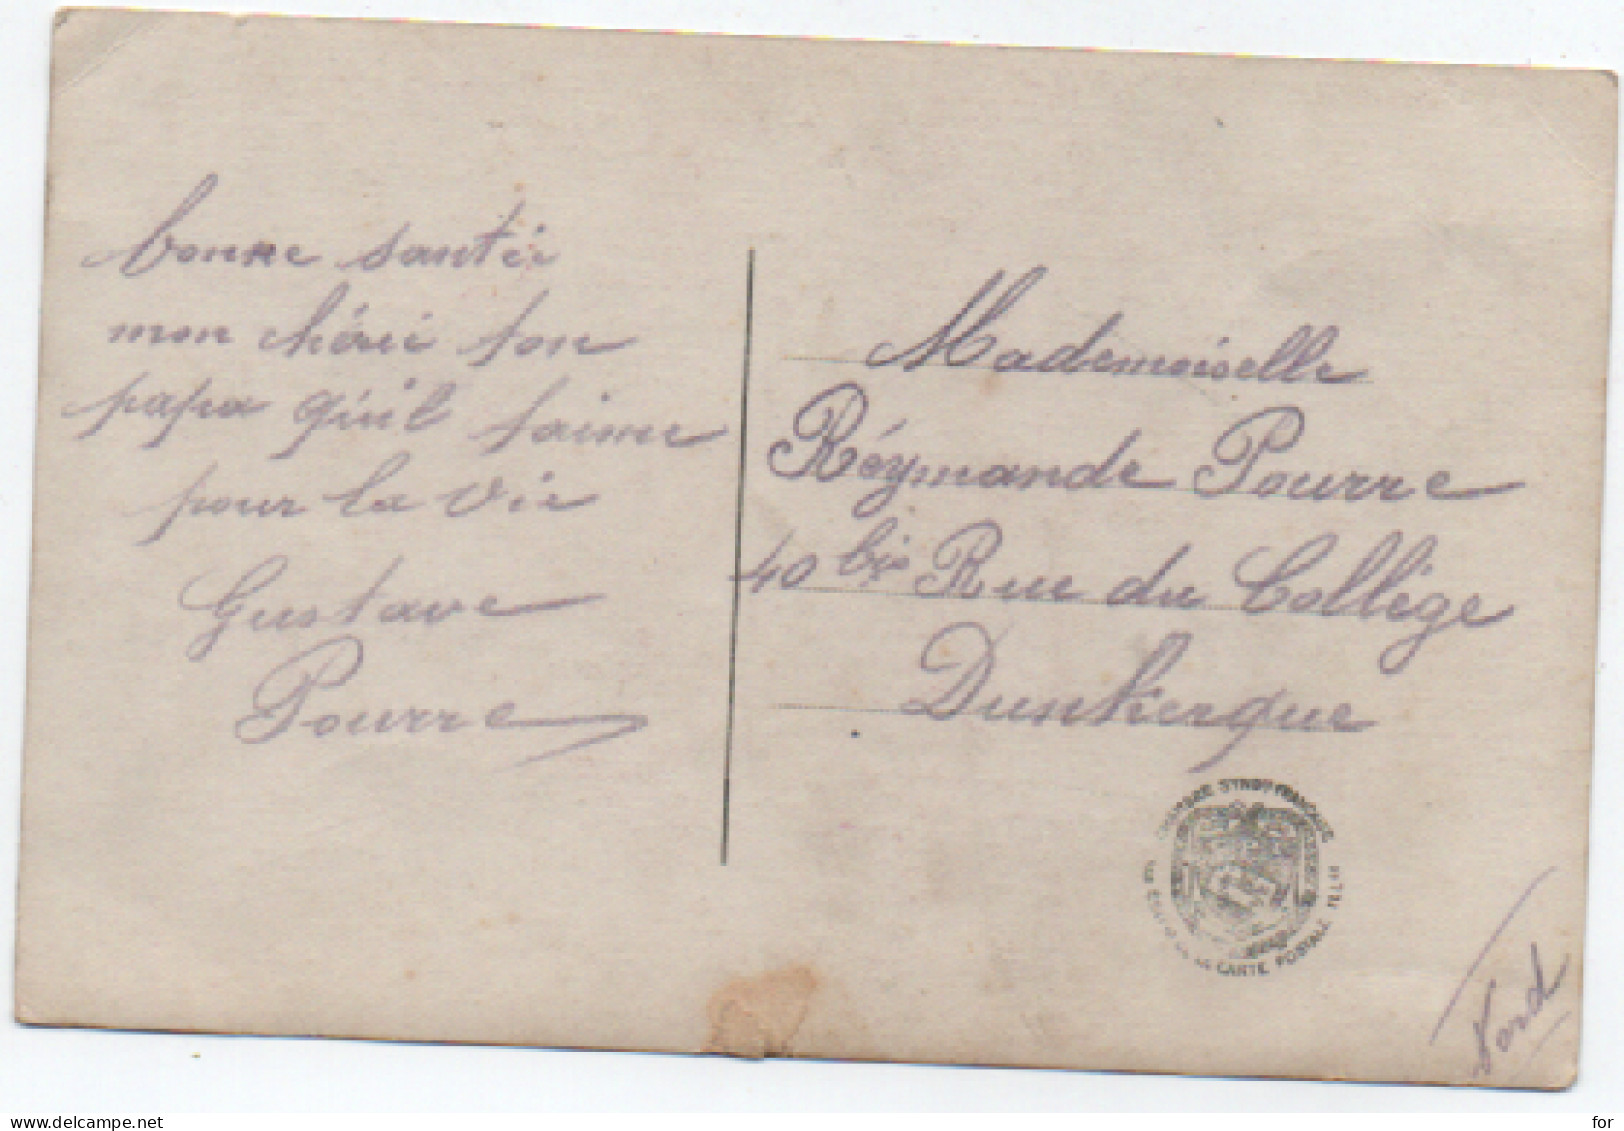 bonne santée
mon chérie ton
papa qu'il t'aime
pour la vie
Gustave
Pourre
Mademoiselle
Réymande Pourre
40 bis Rue du Collège
Dunkerque
Nord
CHAMBRE SYNDle FRANÇAISE
DE LA CARTE POSTALE ILLée
www.delcampe.net
for